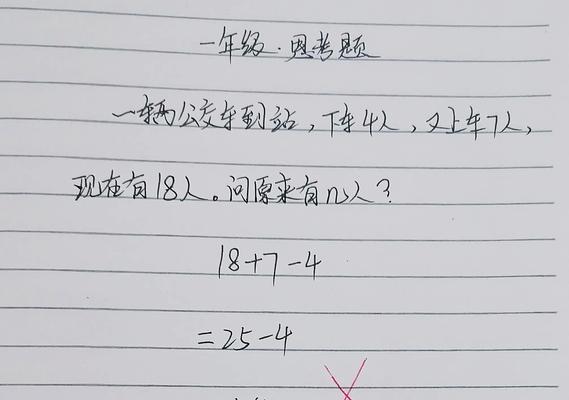 一年级·思考题
一辆公交车到站，下车4人，又上车7人，
现在有18人。问原来有几人？
18+7-4
=25-4